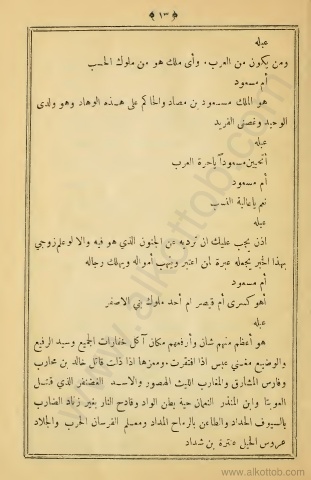 ﴿ ١٣ ﴾
عبله
ومن يكون من العرب . وأى ملك هو من ملوك الحسب
أم مسعود
هو الملك مسعود بن مصاد والحاكم على هذه الوهاد وهو ولدى
الوحيد وغصنى الفريد
عبله
أتحبين مسعوداً ياحرة العرب
أم مسعود
نعم ياعالية النسب
عبله
اذن يجب عليك ان ترديه عن الجنون الذي هو فيه والا لو علم زوجي
بهذا الخبر يجعله عبرة لمن اعتبر وينهب أمواله ويهلك رجاله
أم مسعود
أهو كسرى أم قيصر ام أحد ملوك بني الاصفر
عبله
هو أعظم منهم شان وأرفعهم مكان آكل خفارات الجميع وسيد الرفيع
والوضيع مغني عبس اذا افتقرت. ومعزها اذا ذلت قاتل خالد بن محارب
وفارس المشارق والمغارب الليث الهصور والاسد الغضنفر الذي قتل
وابن المنذر النعمان حية بطن الواد وقادح النار بغير زناد الضارب
بالسيوف الحداد والطاعن بالرماح المداد ومعلم الفرسان الحرب والجلاد
عروس الخيل عنترة بن شداد
www.alkottob.com
www.alkottob.com